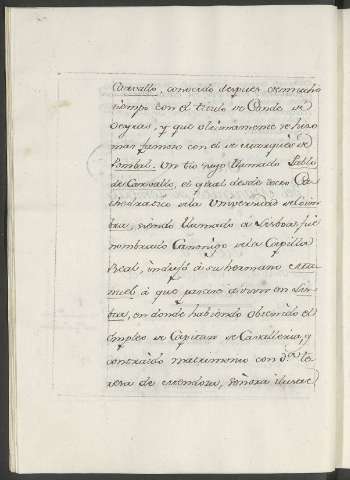 Carvallo, conocido despues de mucho
tiempo con el titulo de Conde de
Oeyras, y que ultimamente se hizo
mas famoso con el de Marqués de
Pombal. Un tio suyo llamado Pablo
de Carvallo, el qual desde Doctor Ca-
thedratico de la Universidad de Coim-
bra, siendo llamado á Lisboa, fue
nombrado Canonigo de la Capilla
Real, induxo á su hermano Ma-
nuel á que pasase á vivir en Lis-
boa, en donde habiendo obtenido el
Empleo de Capitan de Cavalleria, y
contraido matrimonio con D.ª Te-
resa de Mendoza, Señora ilustre